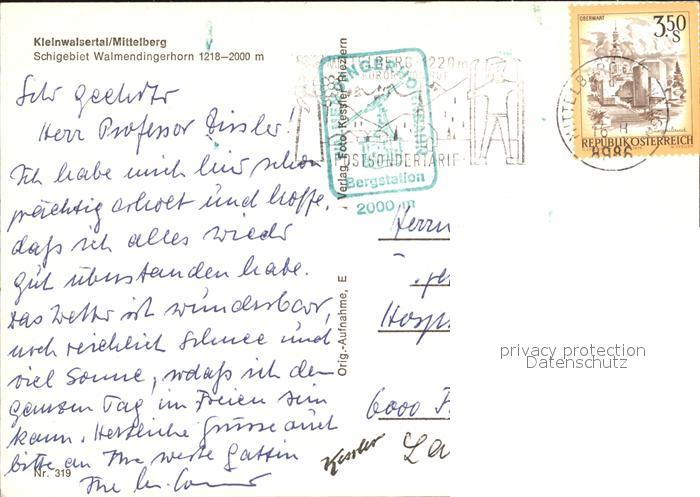 Kleinwalsertal/Mittelberg
Schigebiet Walmendingerhorn 1218–2000 m
Sehr geehrter
Herr Professor Zissler!
Ich habe mich hier schon
prächtig erholt und hoffe,
daß ich alles wieder
gut überstanden habe.
Das Wetter ist wunderbar,
noch reichlich Schnee und
viel Sonne, sodaß ich den
ganzen Tag im Freien sein
kann. Herzliche Grüsse auch
bitte an Ihre werte Gattin
Ihre
Nr. 319
Verlag Foto Kessler Riezlern
Orig.-Aufnahme, E
Kessler
MITTELBERG 1220m
POSTSONDERTARIF
Bergstation
2000 m
MITTELBERG
8986
OBERWART
3.50
S
REPUBLIK ÖSTERREICH
Herrn
Hosp
6000
La
privacy protection
Datenschutz